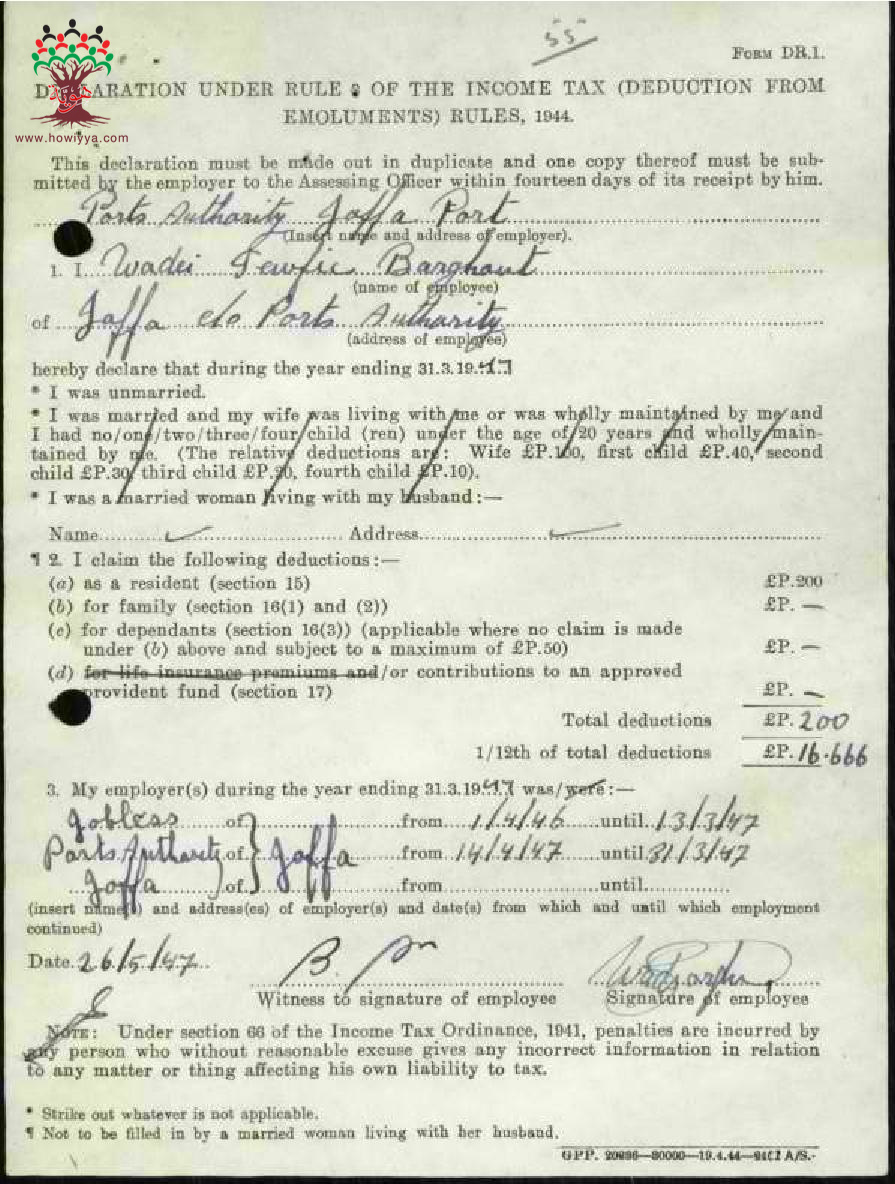 55
FORM DR.1.
DECLARATION UNDER RULE OF THE INCOME TAX (DEDUCTION FROM
EMOLUMENTS) RULES, 1944.
www.howiyya.com
This declaration must be made out in duplicate and one copy thereof must be sub-
mitted by the employer to the Assessing Officer within fourteen days of its receipt by him.
Ports Authority Jaffa Port
(Insert name and address of employer).
1. I Wadei Tewfic Barghout
(name of employee)
of Jaffa c/o Ports Authority
(address of employee)
hereby declare that during the year ending 31.3.1947
* I was unmarried.
* I was married and my wife was living with me or was wholly maintained by me and
I had no/one/two/three/four child (ren) under the age of 20 years and wholly main-
tained by me. (The relative deductions are: Wife £P.100, first child £P.40, second
child £P.30, third child £P.20, fourth child £P.10).
* I was a married woman living with my husband:—
Name ✓ Address
¶ 2. I claim the following deductions:—
(a) as a resident (section 15) £P.200
(b) for family (section 16(1) and (2)) £P. —
(c) for dependants (section 16(3)) (applicable where no claim is made
under (b) above and subject to a maximum of £P.50) £P. —
(d) for life insurance premiums and/or contributions to an approved
provident fund (section 17) £P. —
Total deductions £P. 200
1/12th of total deductions £P. 16.666
3. My employer(s) during the year ending 31.3.1947 was/were:—
Jobless of from 1/4/46 until 13/3/47
Ports Authority of Jaffa from 14/4/47 until 31/3/47
Jaffa of from until
(insert name(s) and address(es) of employer(s) and date(s) from which and until which employment
continued)
Date 26/5/47
Witness to signature of employee Signature of employee
NOTE: Under section 66 of the Income Tax Ordinance, 1941, penalties are incurred by
any person who without reasonable excuse gives any incorrect information in relation
to any matter or thing affecting his own liability to tax.
* Strike out whatever is not applicable.
¶ Not to be filled in by a married woman living with her husband.
GPP. —80000—19.4.44— A/S.-